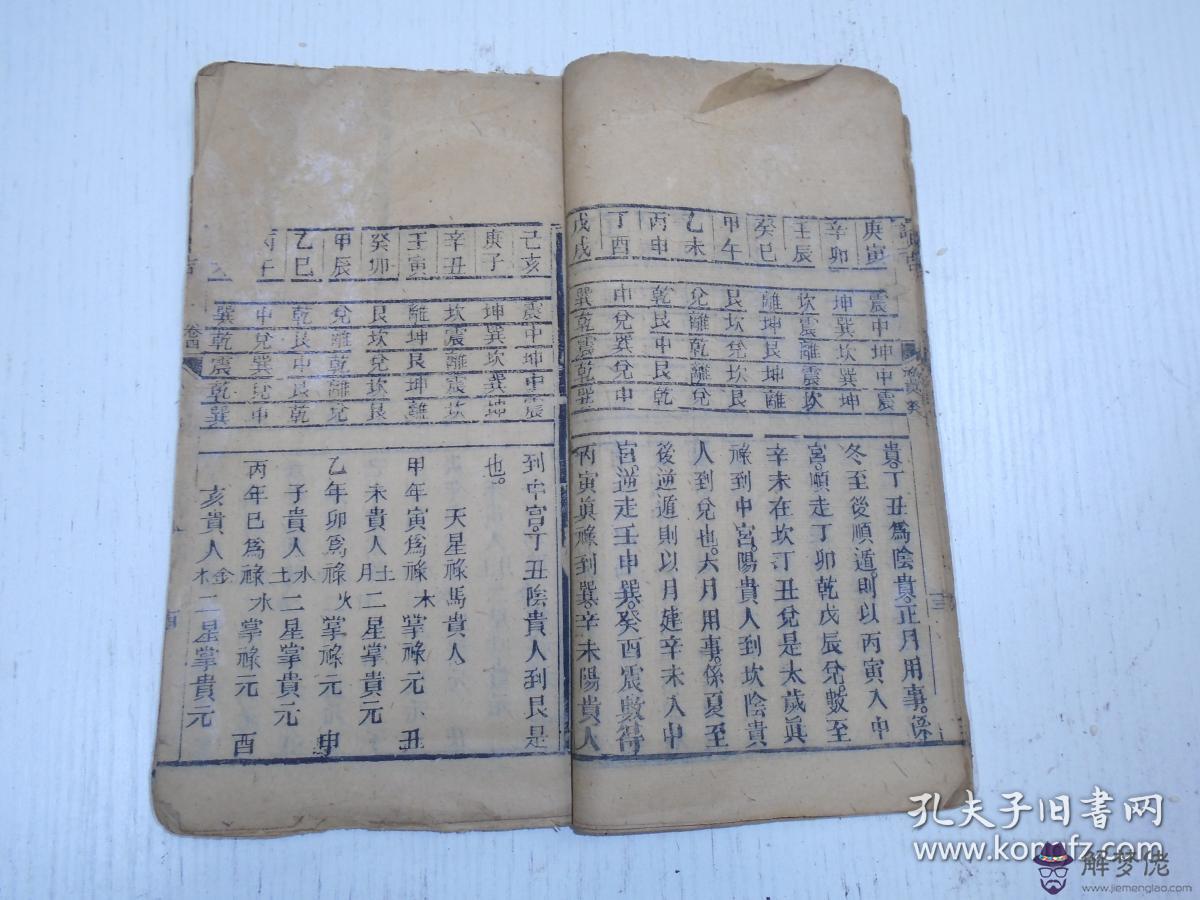 庚寅
辛卯
壬辰
癸巳
甲午
乙未
丙申
丁酉
戊戌
震中坤中震
坤巽坎巽坤
坎震離震坎
離坤艮坤離
艮坎兌坎艮
兌離乾離兌
乾艮中艮乾
中兌巽兌中
巽乾震乾巽
貴。丁丑爲陰貴。正月用事。係
冬至後順遁。則以丙寅入中
宮。順走丁卯乾戊辰兌。數至
辛未在坎丁丑兌是太歲眞
祿到中宮。陽貴人到坎陰貴
人到兌也。六月用事。係夏至
後逆遁則以月建辛未入中
宮。逆走壬申巽。癸酉震數得
丙寅眞祿到巽。辛未陽貴人
己亥
庚子
辛丑
壬寅
癸卯
甲辰
乙巳
丙午
震中坤中震
坤巽坎巽坤
坎震離震坎
離坤艮坤離
艮坎兌坎艮
兌離乾離兌
乾艮中艮乾
中兌巽兌中
巽乾震乾巽
到中宮。丁丑陰貴人到艮是
也。
天星祿馬貴人
甲年寅爲祿木掌祿元丑
未貴人土月二星掌貴元
乙年卯爲祿火掌祿元申
子貴人水土二星掌貴元
丙年巳爲祿水掌祿元酉
亥貴人金木二星掌貴元
卷四
孔夫子旧书网
www.kongfz.com
解梦佬
www.jiemenglao.com